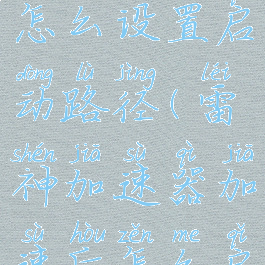 怎么设置启
dòng lù jìng léi
动路径(雷
shén jiā sù qì jiā
神加速器加
sù hòu zěn me qǐ
速后怎么启